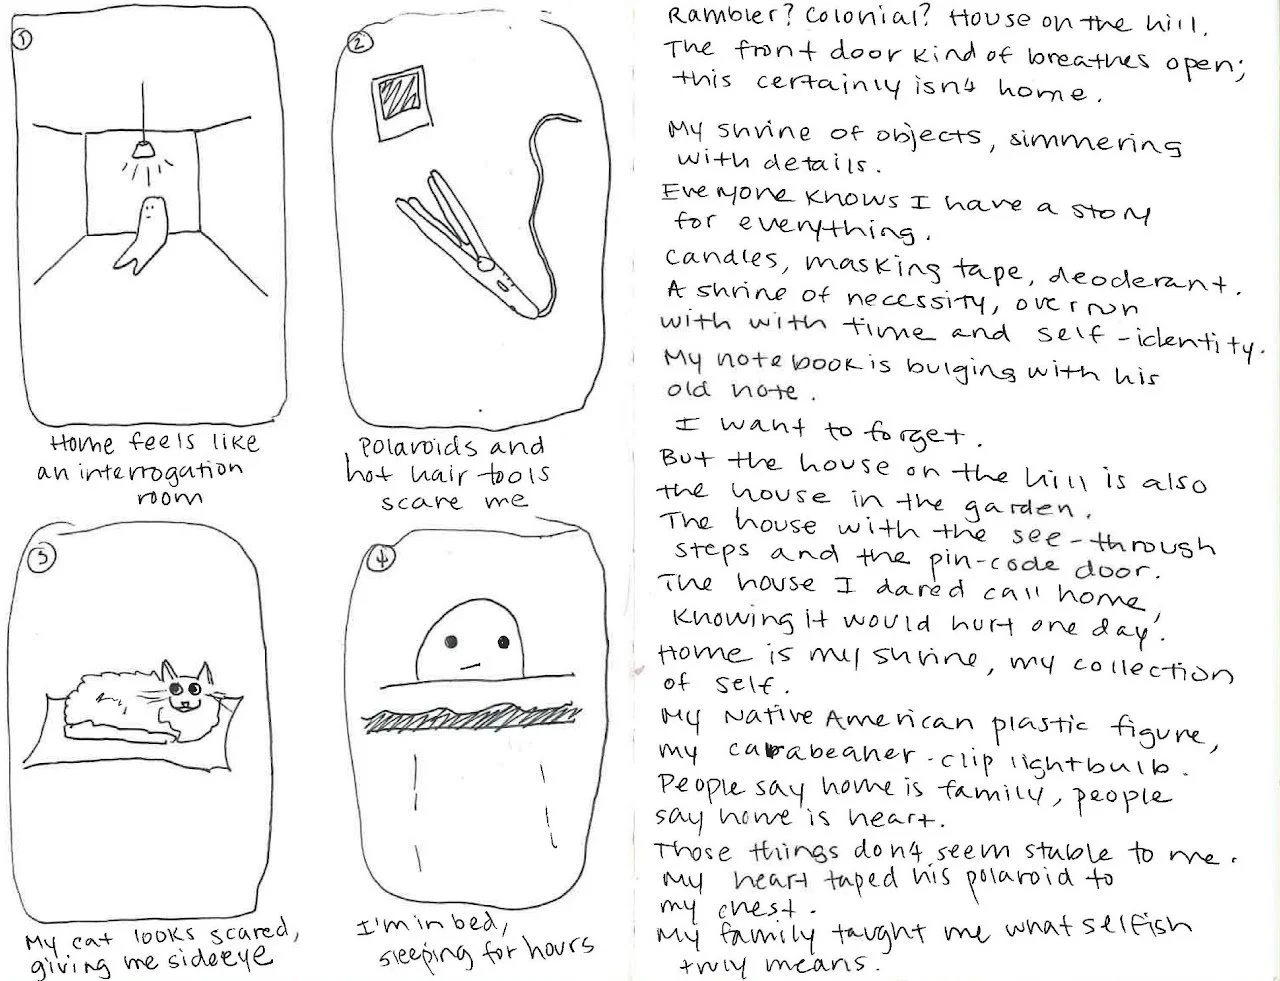 1
Home feels like
an interrogation
room
2
Polaroids and
hot hair tools
scare me
3
My cat looks scared,
giving me sideeye
4
I'm in bed,
sleeping for hours
Rambler? Colonial? House on the hill.
The front door kind of breathes open;
this certainly isn't home.
My shrine of objects, simmering
with details.
Everyone knows I have a story
for everything.
Candles, masking tape, deoderant.
A shrine of necessity, overrun
with with time and self-identity.
My notebook is bulging with his
old note.
I want to forget.
But the house on the hill is also
the house in the garden.
The house with the see-through
steps and the pin-code door.
The house I dared call home,
knowing it would hurt one day.
Home is my shrine, my collection
of self.
My Native American plastic figure,
my carabeaner-clip lightbulb.
People say home is family, people
say home is heart.
Those things don't seem stable to me.
My heart taped his polaroid to
my chest.
My family taught me what selfish
truly means.